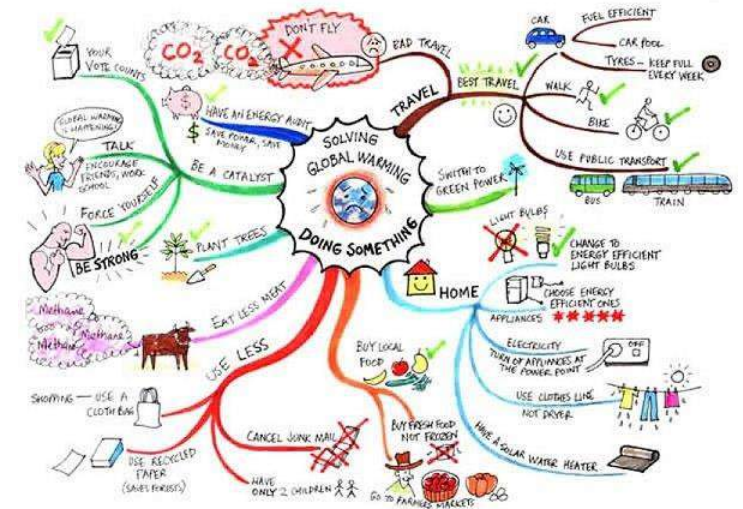 SOLVING
GLOBAL WARMING
DOING SOMETHING
TRAVEL
BAD TRAVEL
DON'T FLY
CO2
CO2
BEST TRAVEL
CAR
FUEL EFFICIENT
CAR POOL
TYRES - KEEP FULL
EVERY WEEK
WALK
BIKE
USE PUBLIC TRANSPORT
BUS
TRAIN
SWITH TO
GREEN POWER
HOME
LIGHT BULBS
CHANGE TO
ENERGY EFFICIENT
LIGHT BULBS
CHOOSE ENERGY
EFFICIENT ONES
APPLIANCES
ELECTRICITY
TURN OF APPLIANCES AT
THE POWER POINT
OFF
USE CLOTHES LINE
NOT DRYER
HAVE A SOLAR WATER HEATER
BUY LOCAL
FOOD
BUY FRESH FOOD
NOT FROZEN
GO TO FARMERS MARKETS
USE LESS
CANCEL JUNK MAIL
HAVE
ONLY 2 CHILDREN
SHOPPING - USE A
CLOTH BAG
USE RECYCLED
PAPER
(SAVES FORESTS)
EAT LESS MEAT
Methane
Methane
Methane
PLANT TREES
BE A CATALYST
YOUR
VOTE COUNTS
GLOBAL WARMING
IS HAPPENING!
TALK
ENCOURAGE
FRIENDS, WORK
SCHOOL
FORCE YOURSELF
BE STRONG
HAVE AN ENERGY AUDIT
$ SAVE POWAR, SAVE
MONEY